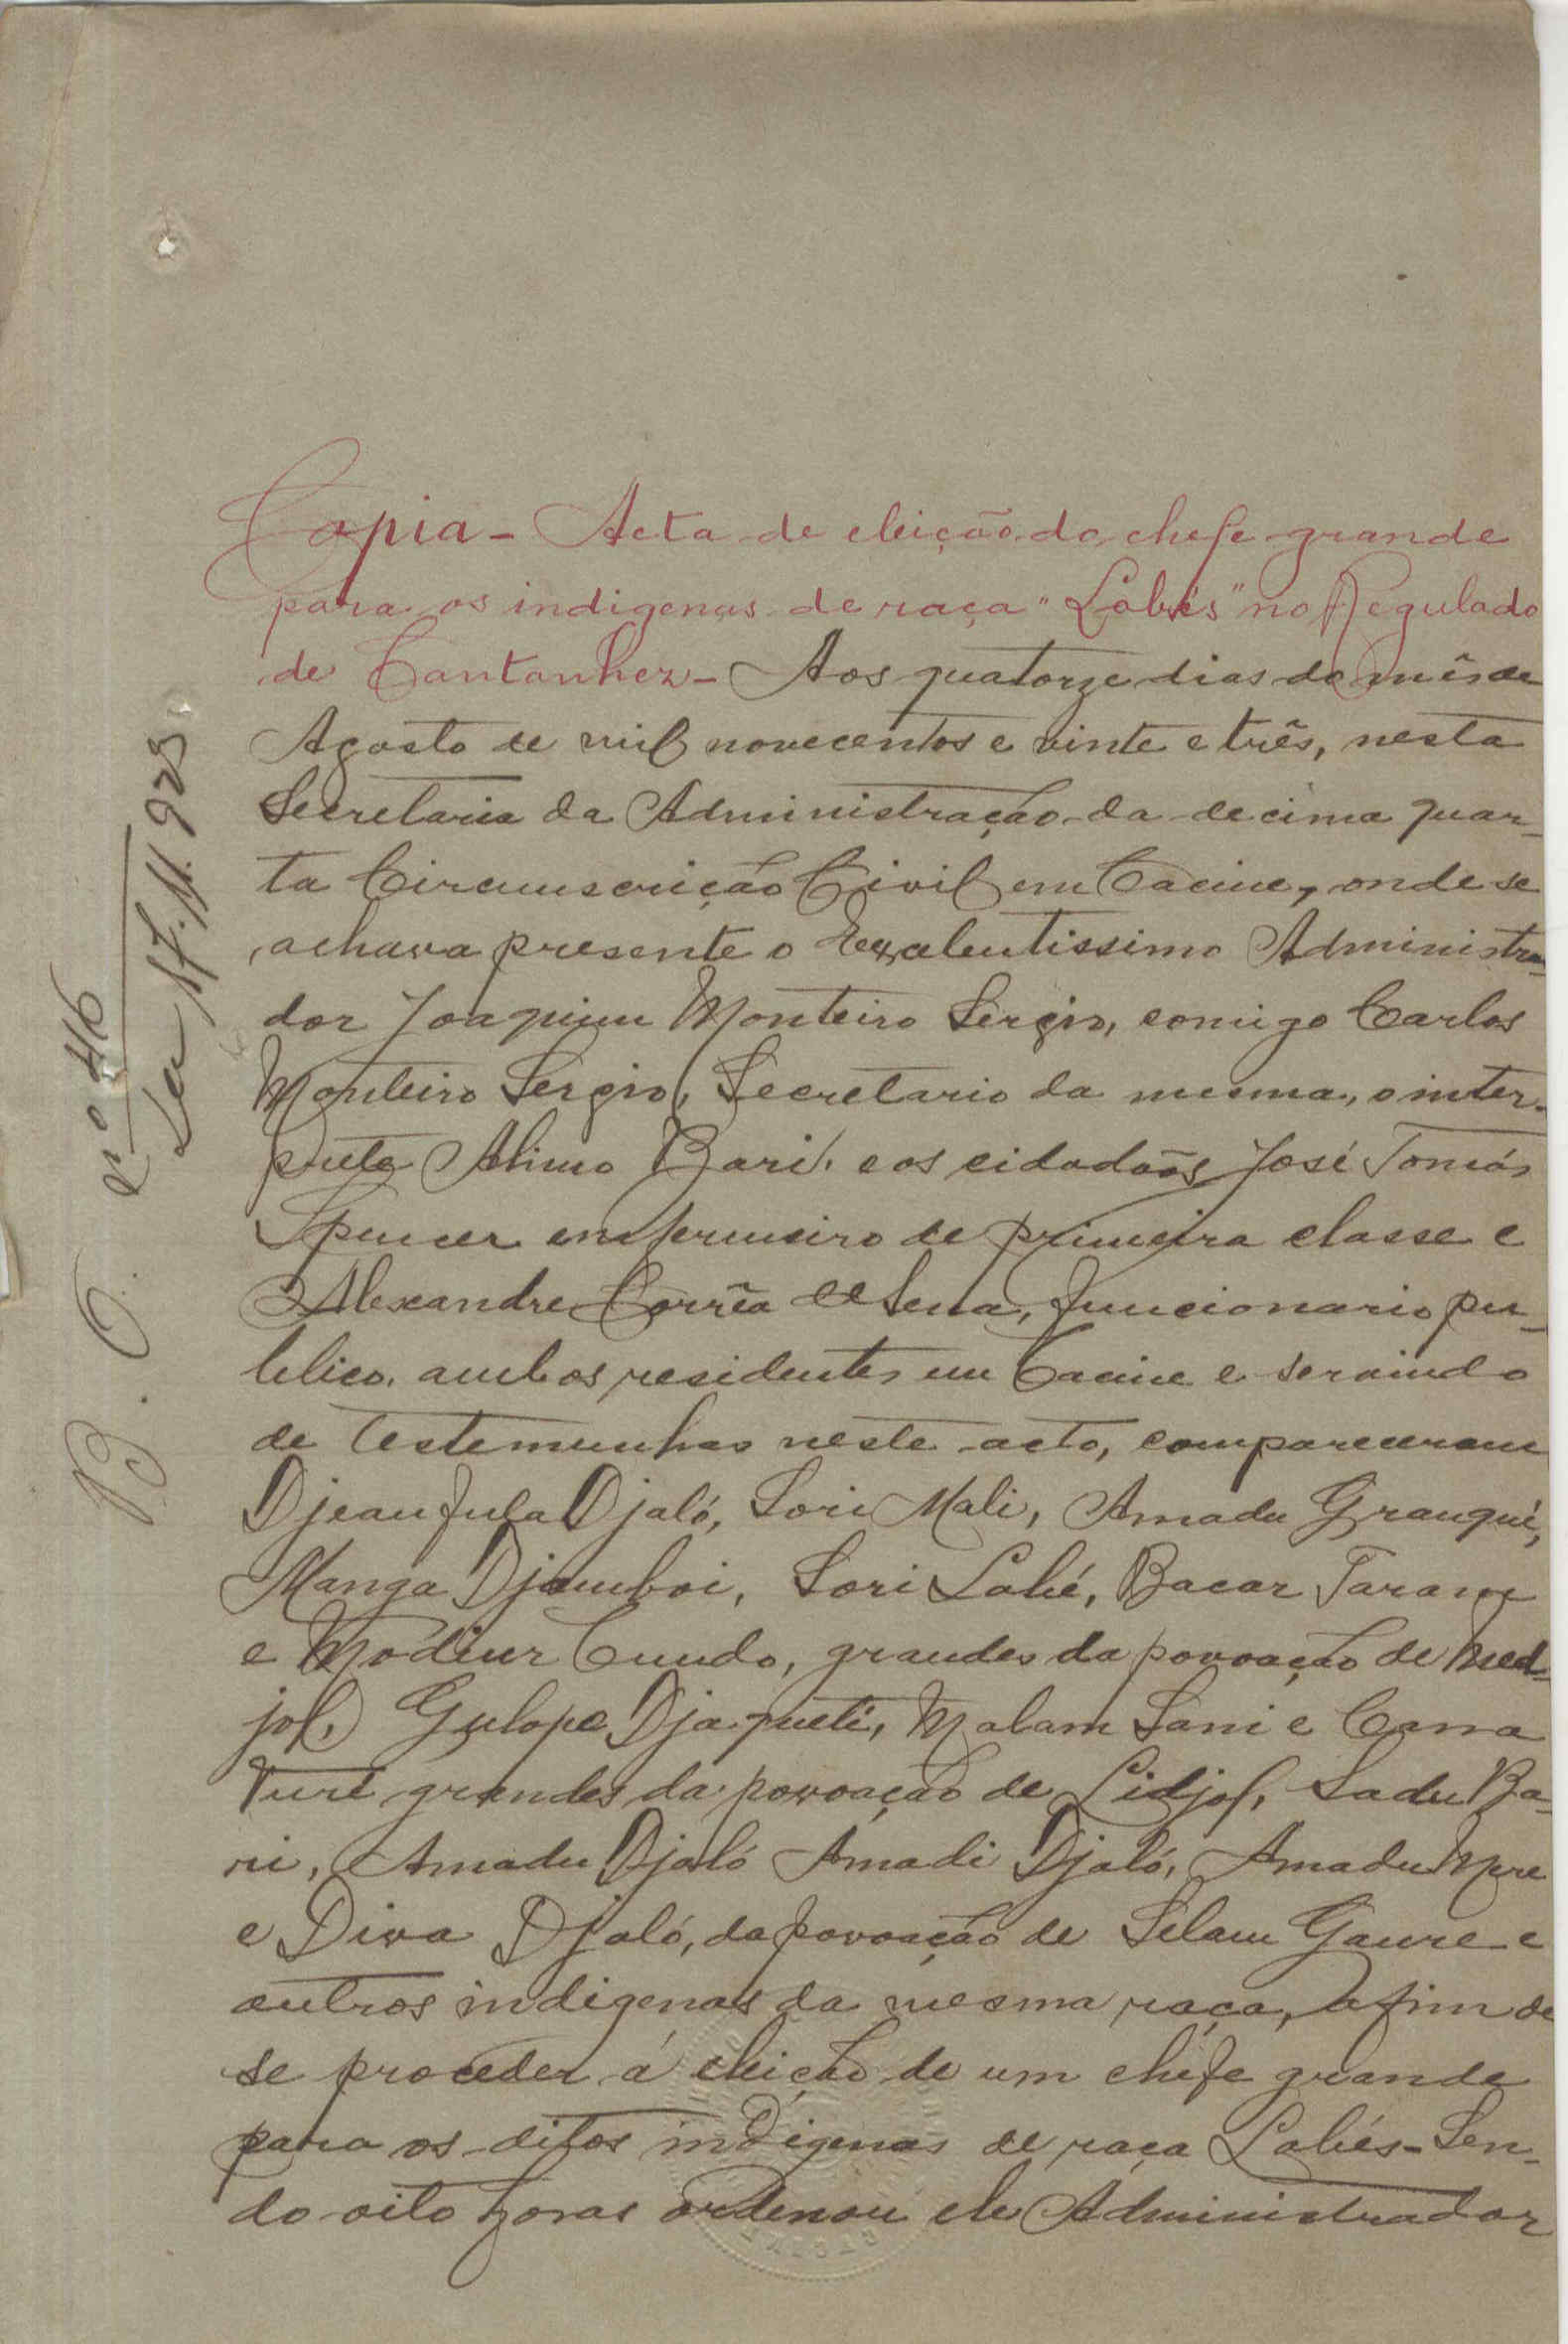 B. O. nº 46
de 17.11.923.
Copia - Acta de eleição do chefe grande
para os indigenas de raça "Labés" no Regulado
de Cantanhez - Aos quatorze dias do mês de
Agosto de mil novecentos e vinte e três, nesta
Secretaria da Administração da decima quar-
ta Circunscrição Civil em Cacine, onde se
achava presente o Excelentissimo Administra-
dor Joaquim Monteiro Sergio, comigo Carlos
Monteiro Sergio, Secretario da mesma, o inter-
prete Alimo Bari, e os cidadãos José Tomás
Spencer enfermeiro de primeira classe e
Alexandre Corrêa de Sena, funcionario pu-
blico, ambos residentes em Cacine e servindo
de testemunhas neste acto, compareceram
Djeau fula Djaló, Sori Mali, Amadu Granqué,
Manga Djamboi, Sori Labé, Bacar Tarave
e Cundo, grandes da povoação de Med-
jol, Gulope Djaqueté, Malam Sani e Cama
Turé grandes da povoação de Lidjol, Sadu Ba-
ri, Amadu Djaló Amadi Djaló, Amadu More
e Diva Djaló, da povoação de Selam Gaure e
outros indigenas da mesma raça, afim de
se proceder á eleição de um chefe grande
para os ditos indigenas de raça Labés - Sen-
do oito horas ordenou ele Administrador